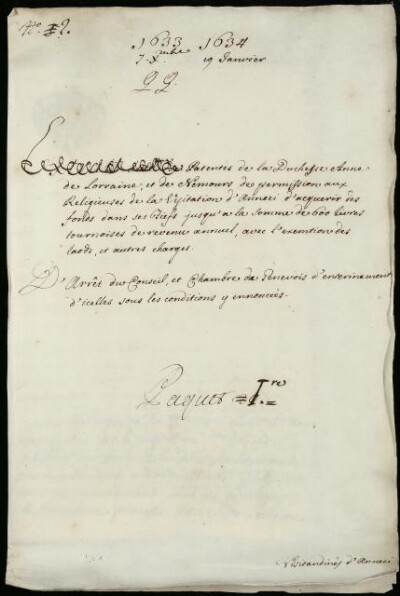 No. 2.
1633 1634
7 Xmbre 19 Janvier
QQ.
Patentes de la Duchesse Anne
de Lorraine, et de Nemours de permission aux
Religieuses de la Visitation d'Anneci d'acquerir des
fonds dans ses fiefs jusqu'a la somme de 600 livres
tournoises de revenu annuel, avec l'exemtion des
laods, et autres charges.
D'Arrêt du Conseil, et Chambre de Genevois d'enterinement
d'icelles sous les conditions y ennoncées.
Paquet I.re
Visitandines d'Anneci